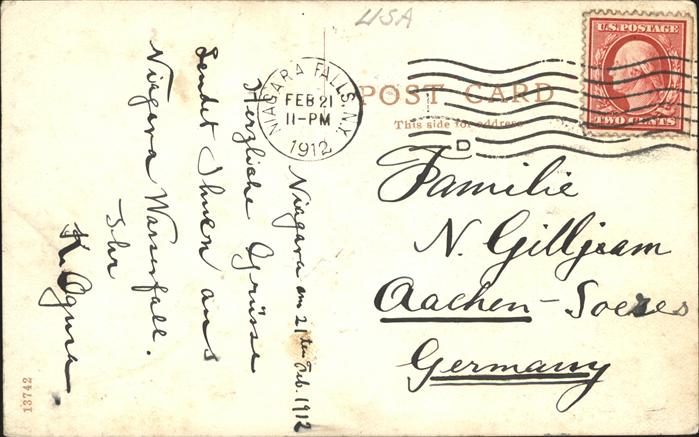 USA
U.S. POSTAGE
TWO CENTS
NIAGARA FALLS, N.Y.
FEB 21
11-PM
1912
POST CARD
This side for address
D
Niagara am 21ten Feb. 1912
Herzliche Grüsse
sendet Ihnen aus
Niagara Wasserfall.
Ihr
K. Ogura
Familie
N. Gilljam
Aachen-
Germany
13742